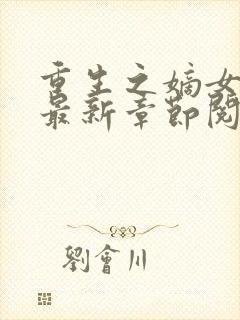 重生之嫡女
最新章節閱
劉會川